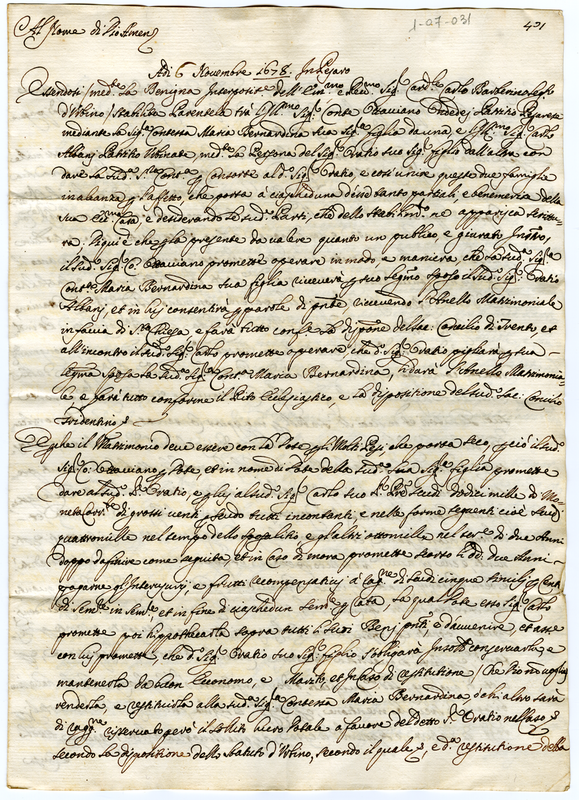 1-27-031
431
Al Nome di Dio Amen
Adi 6 Novembre 1678. In Pesaro
Essendosi med.te la Benigna Interposit.e dell' Em.mo e Rev.mo Sig.r Card.le Carlo Barberino
d'Urbino stabilita Parentela trà l'Ill.mo Sig.r Conte Ottaviano Patritio Pesarese
mediante la Sig.ra Contessa Maria Bernardina sua Sig.ra figlia da una, e l'Ill.mo Sig.r Carlo
Albani Patritio Urbinate med.te la Persona del Sig.r Oratio suo Sig.r figlio dall'altra con
dare la sud.a Sig.ra Cont.a p Consorte al d.o Sig.r Oratio, e così unire queste due famiglie
in alleanza p l'affetto, che porta à ciascheduna d'esse tanto partiali, e benemerite della
sua e desiderando le sud.e Parti, che dello ne apparisca Scrittu-
ra. Di qui è che p la presente da valere quanto un publico e giurato Instro.
il sud.o Sig.r Co: Ottaviano promette operare in modo e maniera, che la sud.a Sig.ra
Cont.a Maria Bernardina sua figlia riceverà p suo legitmo sposo il sud.o Sig.r Oratio
Albani, et in lui consentirà p parole di pnte ricevendo l'Anello Matrimoniale
in facia di S.ta Chiesa, e farà tutto conf.e disponе del Sac: Concilio di Trento et
all'incontro il sud.o Sig.r Carlo promette operare che d.o Sig.r Oratio pigliarà p sua
legitma sposa la sud.a Sig.ra Cont.a Maria Bernardina, li darà l'Anello Matrimonia-
le e farà tutto conforme il Rito Eclesiastico, e la dispositione del sud.o Sac: Concilio
Tridentino
E pche il Matrimonio deve essere con la Dote p li Molti Pesi che porta seco, p ciò il sud.o
Sig.r Co: Ottaviano p Dote et in nome di Dote della sud.a sua Sig.ra figlia promette
dare al sud.o S.r Oratio, e p lui al sud.o Sig.r Carlo suo S.r Pre Scudi dodici mille di Mo-
neta di grossi venti p scudo tutti in contanti, e nelle forme seguenti cioè Scudi
quattromille nel tempo dello sposalitio e p l'altri ottomille nel ter.e di due Anni
doppo da finire come seguita, et in caso di mora promette scorso li dd. due Anni
pagarne gl'Interusurij, e frutti recompensativi à rag.ne di scudi cinque simili p Cento
di Sem.e in Sem.e, et in fine di ciaschedun sem.e p rata, la qual Dote esso Sig.r Carlo
promette poi hippothecarla sopra tutti li suoi Beni pnti, e d'avvenire, et asse-
con lui promette che d.o Sig.r Oratio suo Sig.r figlio l'obligarà conservarla, e
mantenerla da buon Economo, e Marito, et in caso di restitutione (che Dio nò voglia)
renderla, e restituirla alla sud.a Sig.ra Contessa Maria Bernardina, ò chi altro sarà
di rag.ne riservato però il solito lucro Dotale à favore del detto S.r Oratio nel caso, e
secondo la dispositione dello Statuto d'Urbino, secondo il quale, e d.a restitutione della